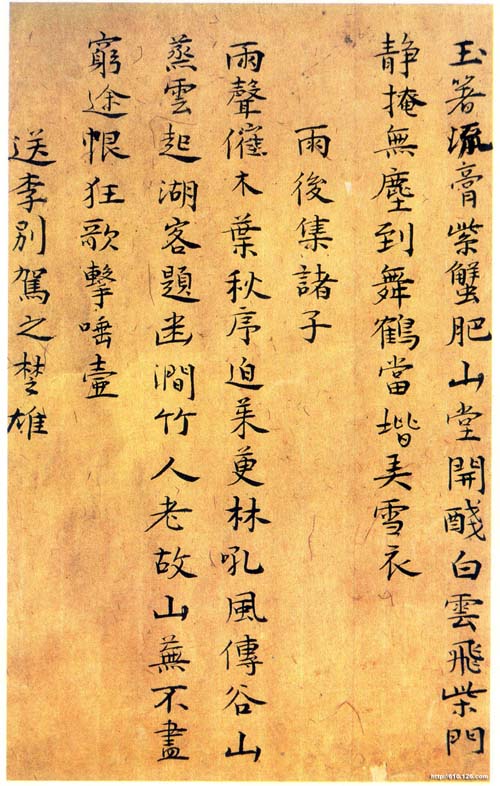 玉箸流膏紫蟹肥山堂開醆白雲飛柴門
靜掩無塵到舞鶴當堦美雪衣
雨後集諸子
雨聲催木葉秋序迫茱萸林吼風傳谷山
蒸雲起湖客題幽澗竹人老故山蕪不盡
窮途恨狂歌擊唾壷
送李別駕之楚雄
http://610.126.com